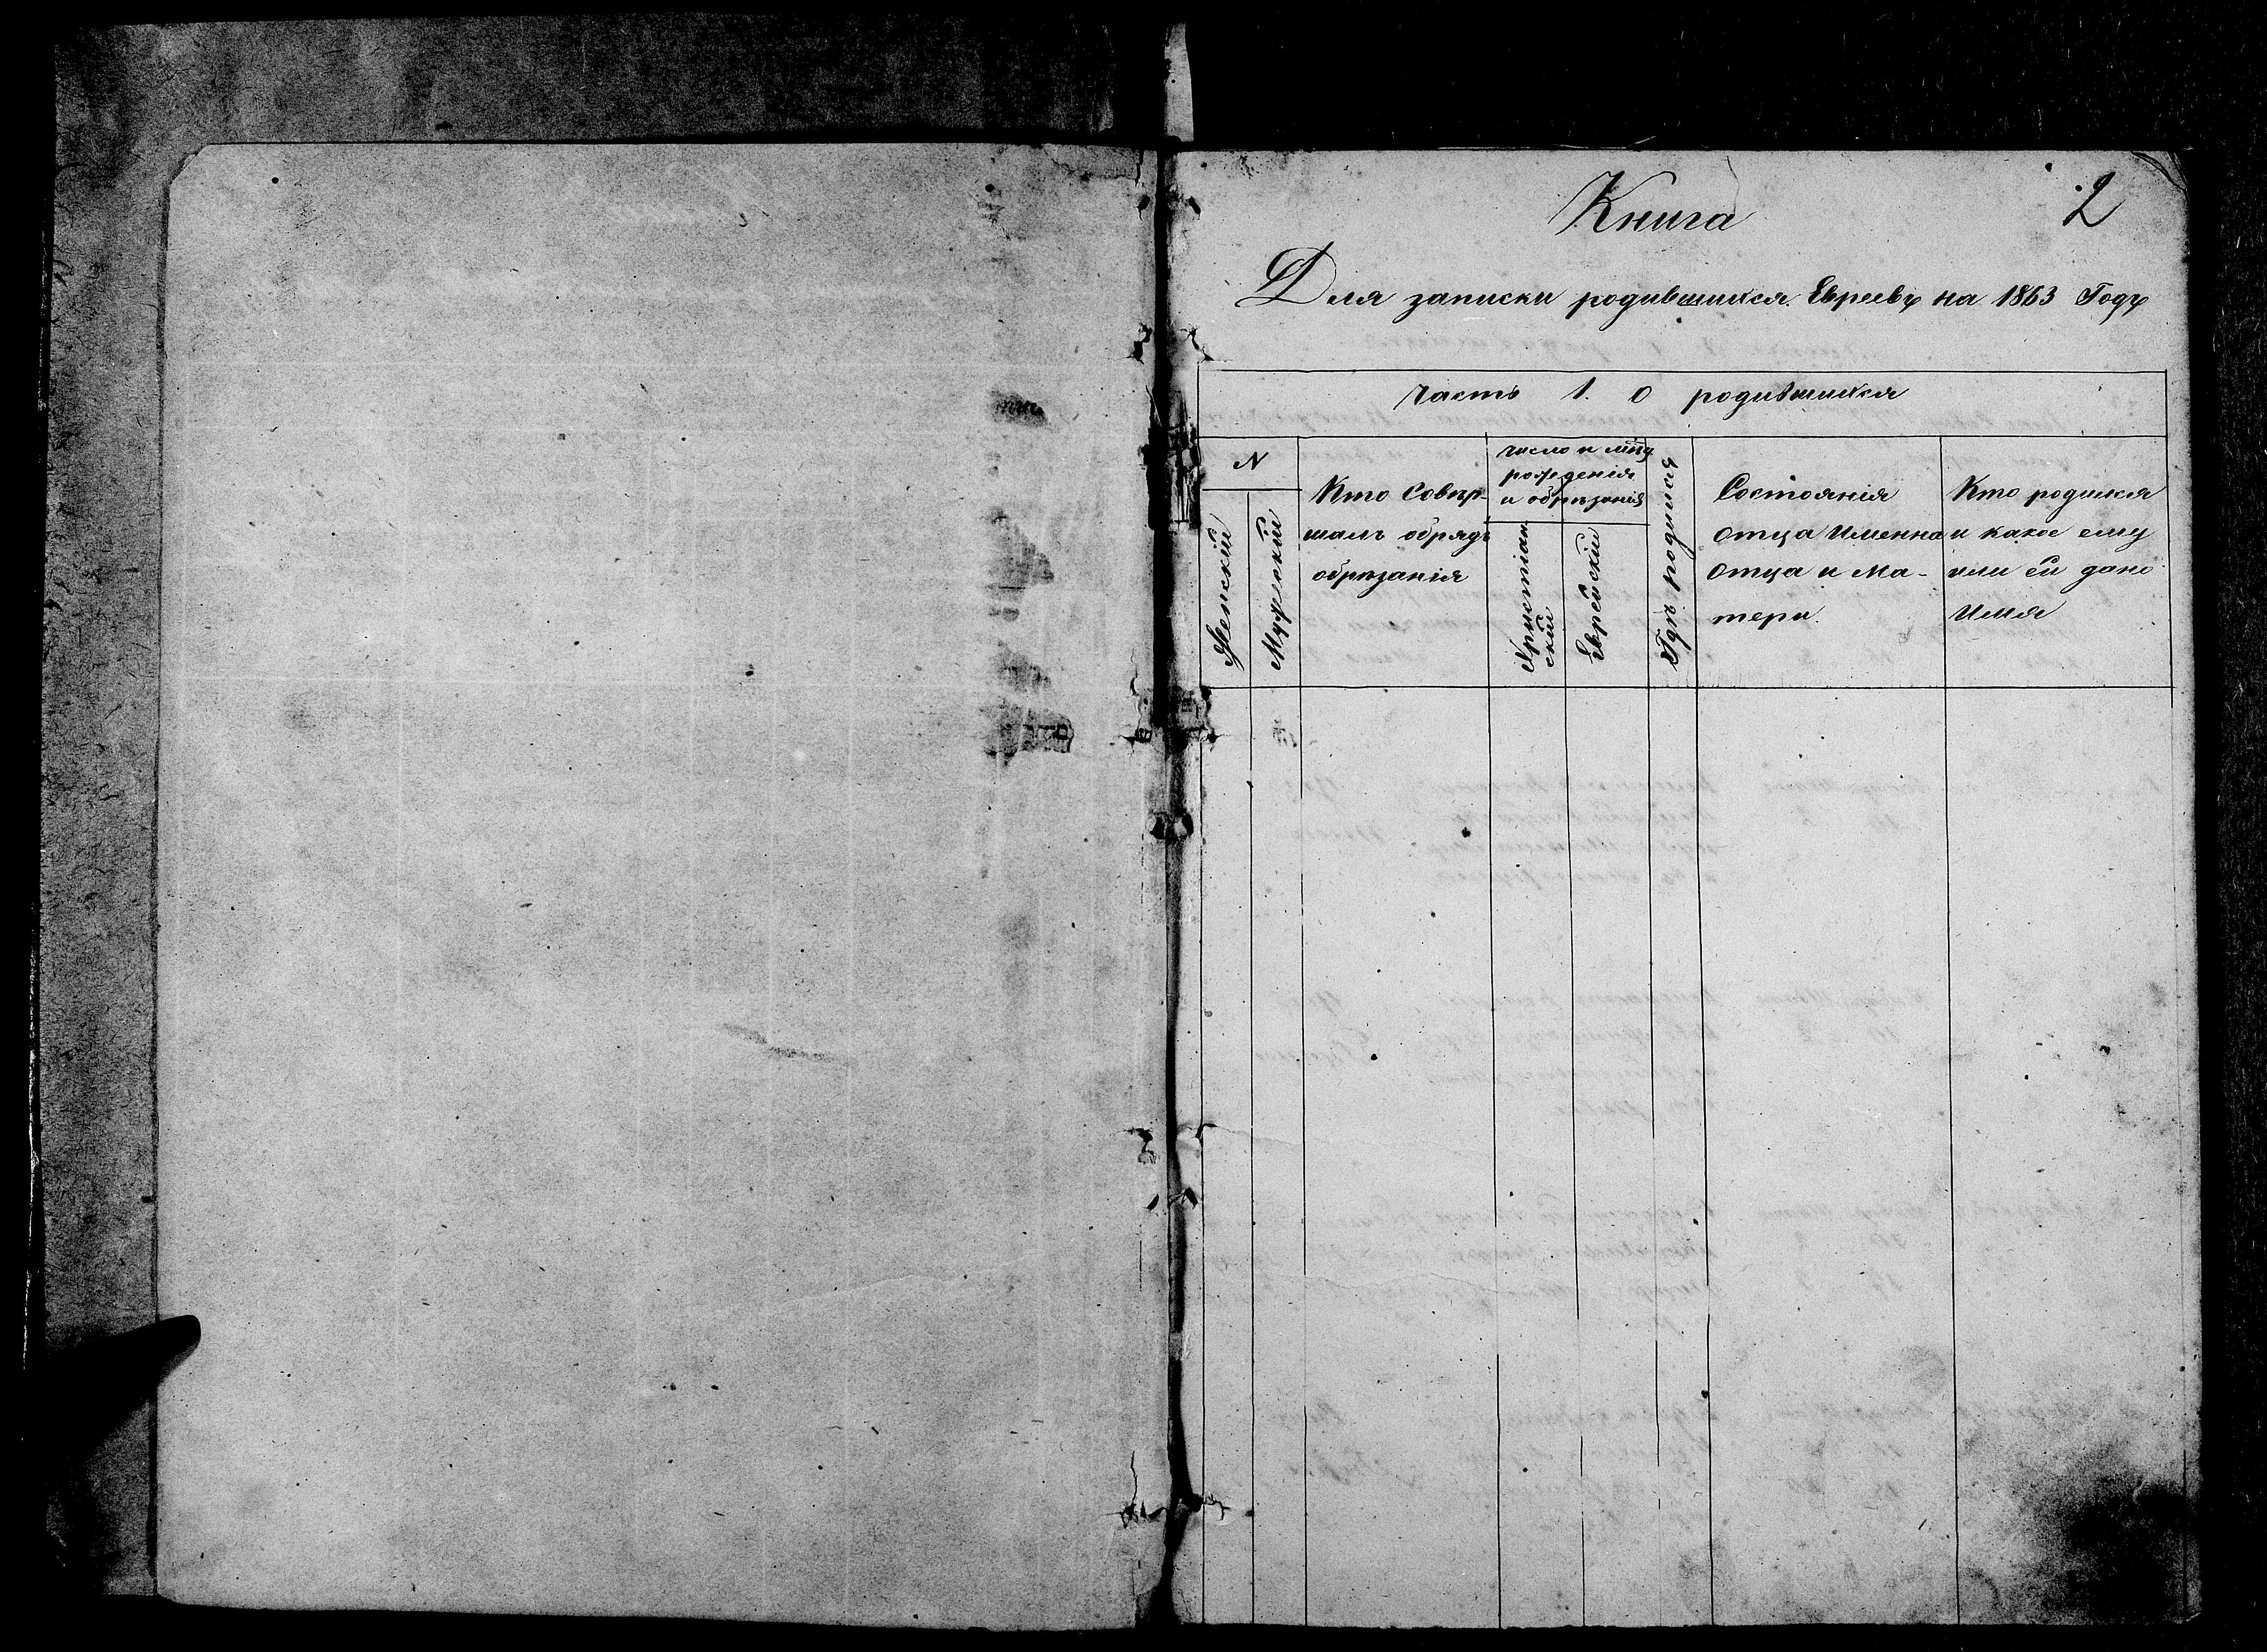 2
Книга
Для записки родившихся Евреевъ на 1863 Годъ
Часть 1. о родившихся
N
Женскій
Мужескій
Кто Совѣр-
шалъ обрядъ
обрѣзанія
число и мѣцъ
рожденія
и обрѣзанія
Христіан
скій
Еврейскій
Гдѣ родился
Состоянія
отца Именна
отца и Ма-
тери.
Кто родился
и какое ему
или ей дано
Имя